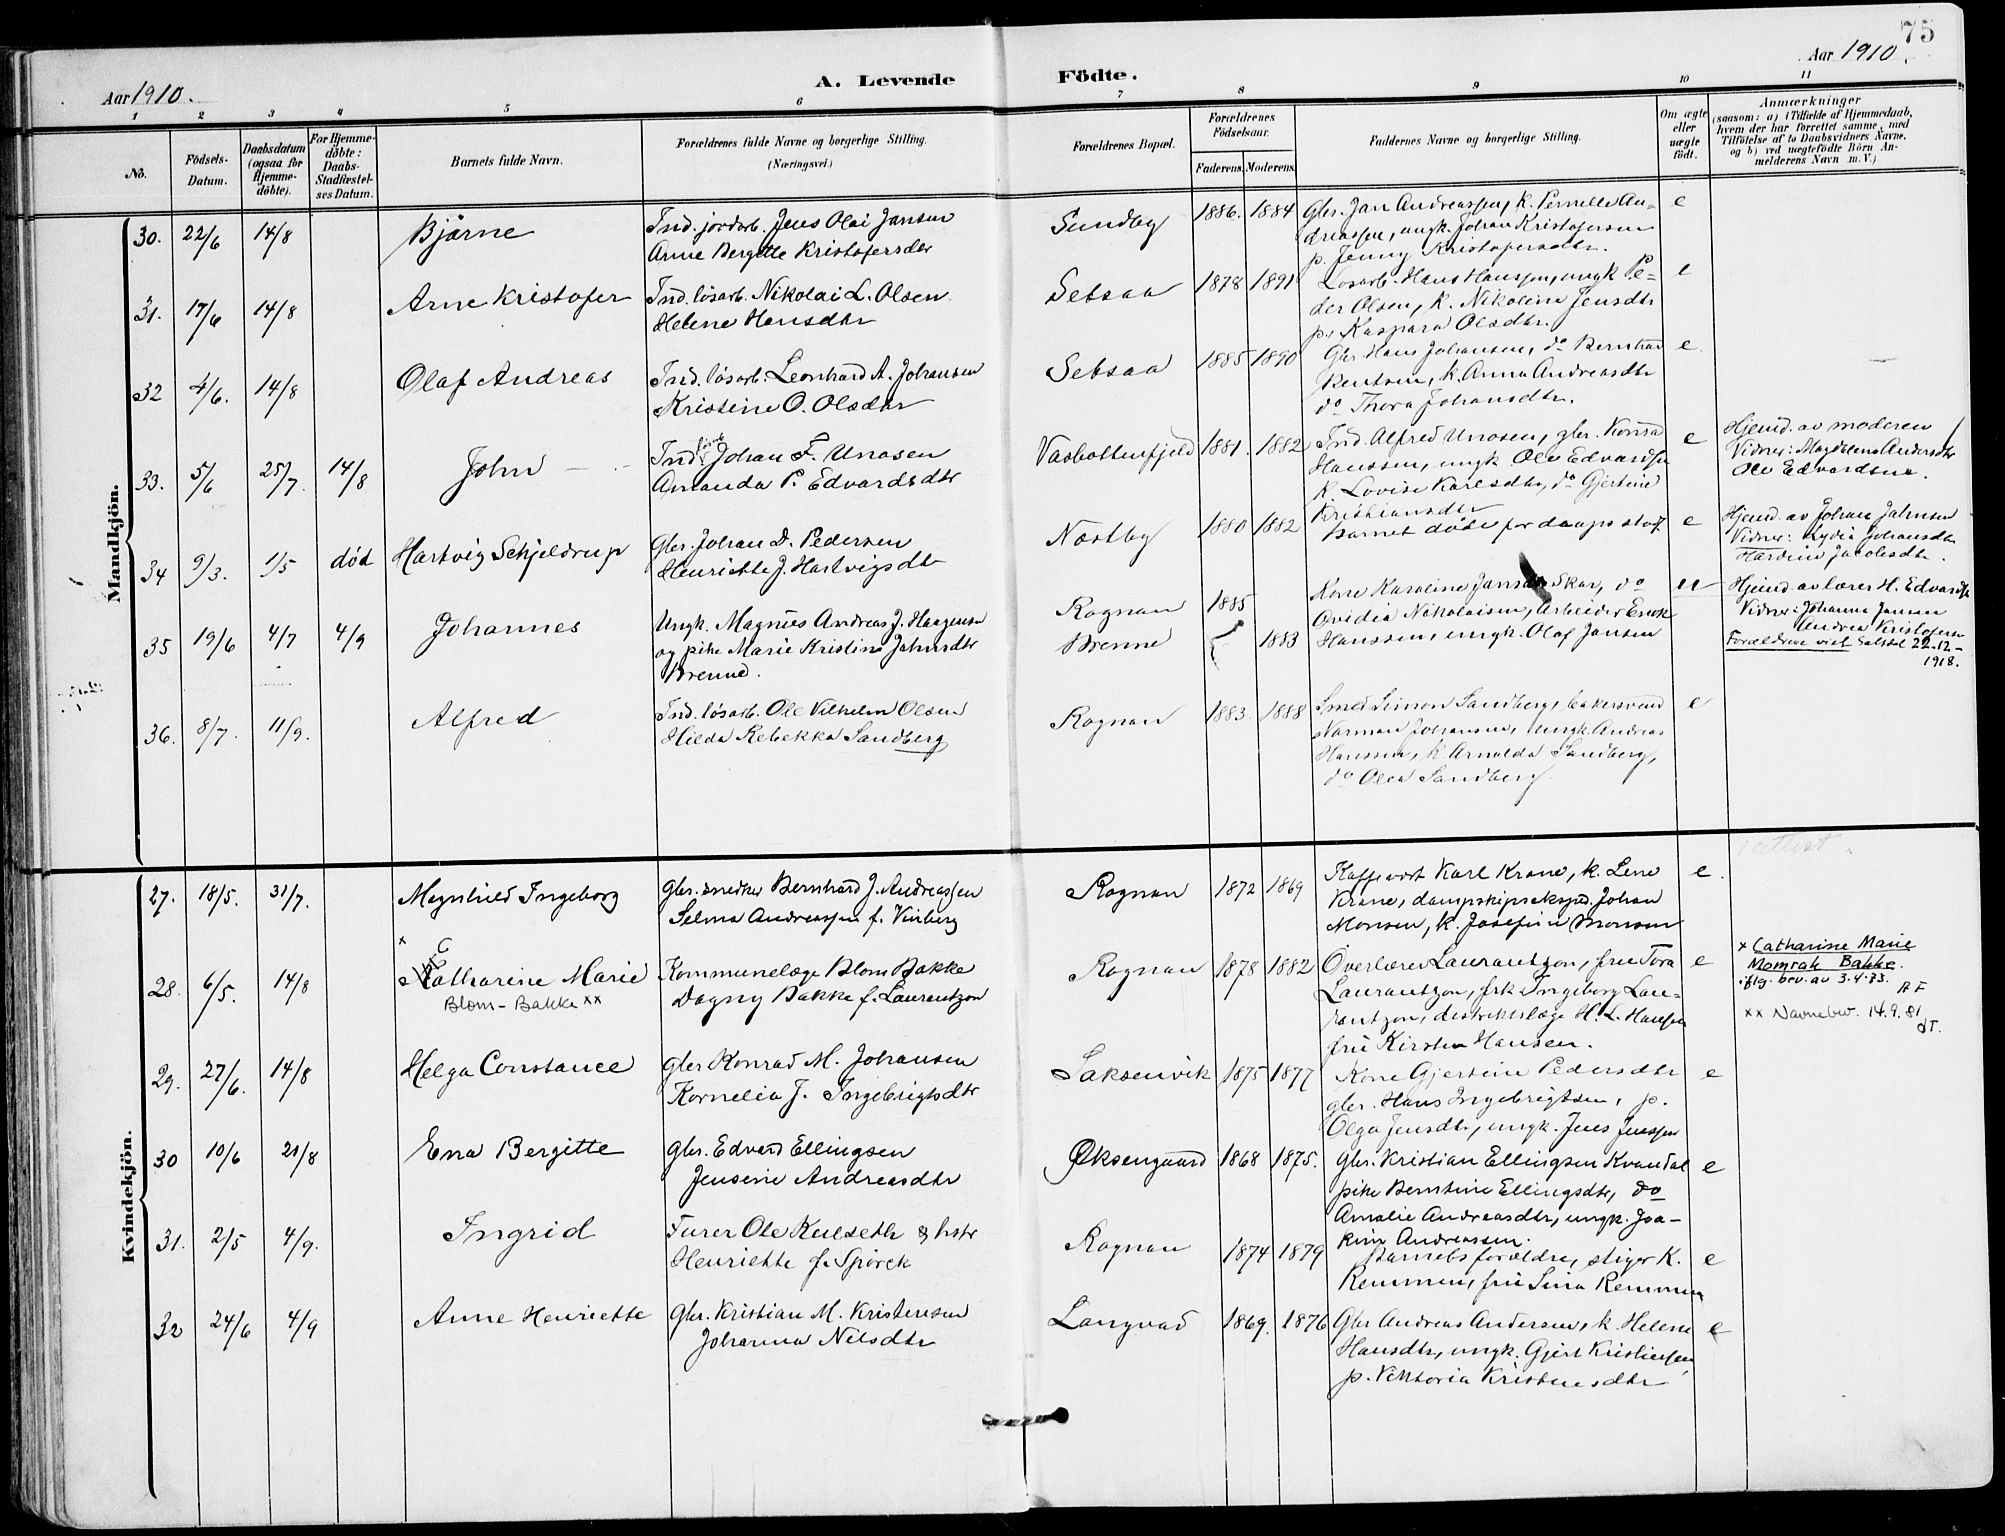 75
Aar 1910.
A. Levende
Födte.
Aar 1910.
1 2 3 4 5 6 7 8 9 10 11
No.
Födsels-
Datum.
Daabsdatum
(ogsaa for
Hjemme-
döbte).
For Hjemme-
döbte:
Daabs-
Stadfæstel-
ses Datum.
Barnets fulde Navn.
Forældrenes fulde Navne og borgerlige Stilling.
(Næringsvei.)
Forældrenes Bopæl.
Forældrenes
Födselsaar.
Faderens. Moderens.
Faddernes Navne og borgerlige Stilling.
Om ægte
eller
uægte
födt.
Anmærkninger
(saasom: a) i Tilfælde af Hjemmedaab,
hvem der har forrettet samme, med
Tilföielse af to Daabsvidners Navne,
og b) ved uægtefödte Börn An-
melderens Navn m. V.)
Mandkjön.
30. 22/6 14/8
Bjarne
Ind. jordarb. Jens Olai Jansen
Anne Bergitte Kristofersdtr
Sundby
1886. 1884
Gbr. Jan Andreassen, k. Pernelle An-
dreassen, ungk. Johan Kristofersen
p. Jenny Kristofersdtr.
e
31. 17/6 14/8
Arne Kristofer
Ind. løsarb. Nikolai L. Olsen
Helene Hansdtr
Setsaa
1878 1891
Løsarb. Hans Hanssen, ungk Pe-
der Olsen, k. Nikoline Jensdtr
p. Kaspara Olsdtr.
e
32 4/6. 14/8
Olaf Andreas
Ind. løsarb. Leonhard A. Johansen
Kristine O. Olsdtr
Setsaa
1885 1890
Gbr. Hans Johansen, do Bernhard
Bentsen, k. Anna Andreasdtr
do Thora Johansdtr.
e.
33. 5/6 25/7. 14/8
John
Ind. løsarb Johan F. Unosen
Amanda P. Edvardsdtr
Vasbottenfjeld
1881. 1882
Ind. Alfred Unosen, gbr. Konra
Hanssen, ungk Ole Edvardsen
k. Lovise Karlsdtr, do Gjertine
Kristiansdtr
e
Hjemd. av moderen
Vidner: Magdalena Andersdtr
Ole Edvardsen.
34 9/3. 1/5 død
Hartvig Schjeldrup
Gbr. Johan D. Pedersen
Henriette J. Hartvigsdtr
Næstby
1880 1882
Barnet døde før daaps stadf.
e
Hjemd. av Johan Jahnsen
Vidner: Lydia Johansdtr
Hardine Jacobsdtr.
35 19/6 4/7 4/9
Johannes
Ungk. Magnus Andreas J. Haagensen
og pike Marie Kristine Jahnsdtr
Brenne.
Rognan
Brenne
1885
1883
Kone Karoline Jansdtr Skar, do
Ovidia Nikolaisen, Arbeider Enok
Hanssen, ungk. Olaf Jansen
u
Hjemd. av lærer H. Edvardsen
Vidner: Johanna Jansen
Andrea Kristofersen
Forældrene viet Saltdal 22-12-
1918.
36. 8/7. 11/9.
Alfred
Ind. løsarb. Ole Vilhelm Olsen
Hilda Rebekka Sandberg
Rognan
1883. 1888
Smed Simon Sandberg, bakersvend
Norman Johansen, ungk. Andreas
Hanssen, k Arnolda Sandberg,
do Olea Sandberg.
e
Kvindekjön.
27. 18/5. 31/7.
Magnhild Ingeborg
Gbr. snedker Bernhard J. Andreassen
Selma Andreassen f. Vinberg
Rognan
1872 1869
Kaffevert Karl Krane, k. Lene
Krane, dampskipseksped. Johan
Monsen, k. Josefine Monsen
e.
28. 6/5. 14/8
x C
Katharine Marie
Blom-Bakke xx
Kommunelæge Blom Bakke
Dagny Bakke f. Laurantzon
Rognan
1878 1882
Overlærer Laurantzon, fru Tora
Laurantzon, frk Ingeborg Lau-
rantzon, distriktslæge H. L. Hansen
fru Kirsten Hansen.
e
x Catharine Marie
Momrak Bakke.
iflg. bev. av 3.4.73. AF
xx Navnebev. 14.9.81
dT.
29. 27/6. 14/8
Helga Constance
Gbr Konrad M. Johansen
Kornelia J. Ingebrigtsdtr
Saksenvik
1875 1877
Kone Gjertine Pedersdtr
gbr. Hans Ingebrigtsen, p.
Olga Jensdtr, ungk. Jens Jenssen
e
30 10/6 21/8
Ena Bergitte
Gbr. Edvard Ellingsen
Jensine Andreasdtr
Øksengaard
1868 1875.
Gbr. Kristian Ellingsen Kvandal
pike Berntine Ellingsdtr, do
Amalie Andreasdtr, ungk. Joa-
kim Andreassen.
e
31. 2/5 4/9.
Ingrid
Furer Ole Kulseth & hstr
Henriette f. Spørck
Rognan
1874 1879
Barnets forældre, stiger K.
Remmen, fru Sina Remmen
e
32 24/6 4/9
Anne Henriette
Gbr. Kristian M. Kristensen
Johanna Nilsdtr
Langvad
1869. 1876
Gbr Andreas Andersen, k. Helene
Hansdtr, ungk. Gjert Kristiansen
p. Viktoria Kristensdtr
e